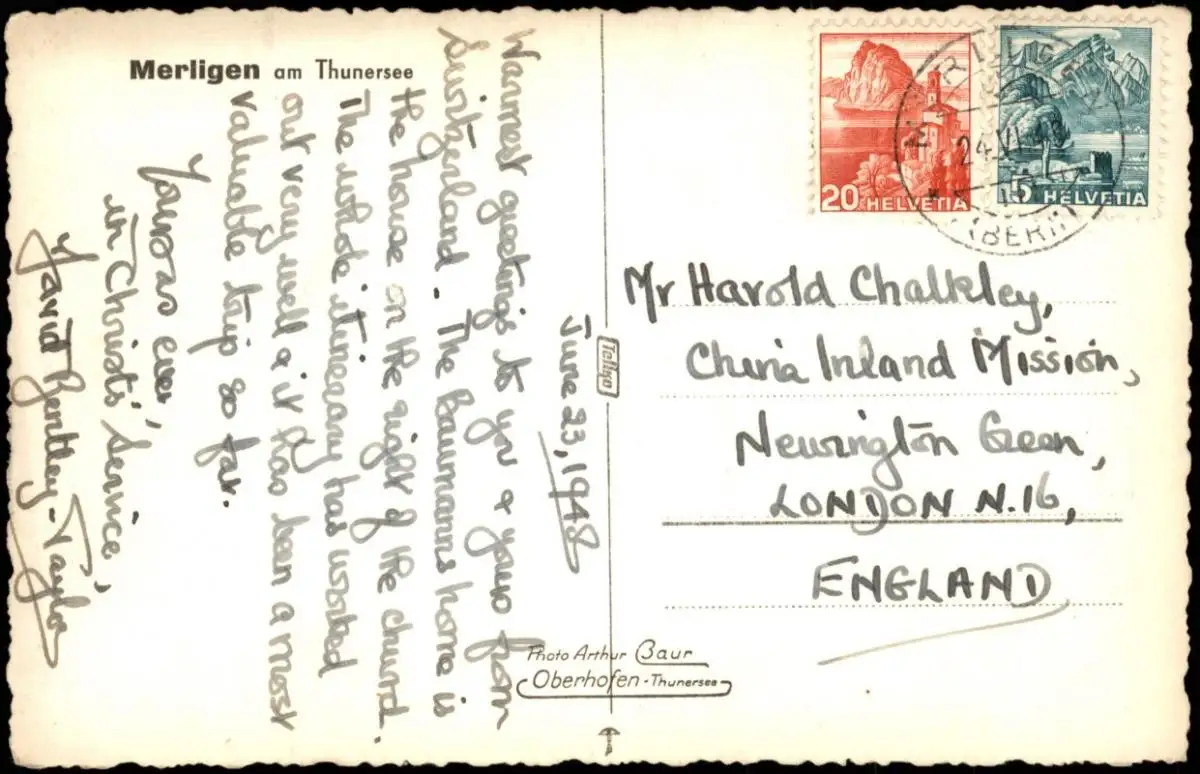 Merligen am Thunersee
June 23, 1948
Warmest greetings to you & yours from
Switzerland. The Baumanns home is
the house on the right of the church.
The whole itinerary has worked
out very well & it has been a most
valuable trip so far.
Yours as ever,
in Christs' Service,
David Bentley-Taylor
Tellko
Photo Arthur Baur
Oberhofen - Thunersee
20 HELVETIA
5 HELVETIA
24.VI.
(BERN)
Mr Harold Chalkley,
China Inland Mission,
Newington Green,
LONDON N.16,
ENGLAND